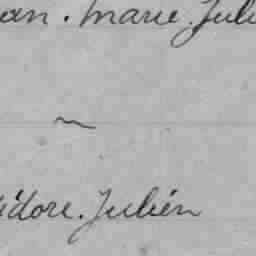 an. Marie. Juli
~
idore. Julien